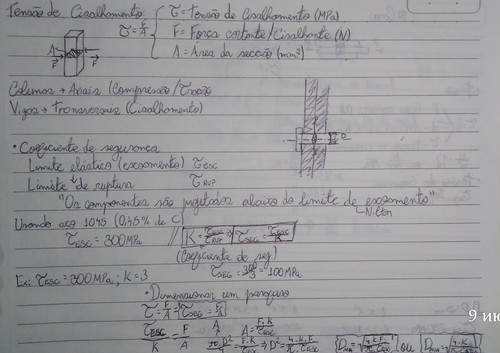 Tensão de Cisalhamento
τ = F/A
τ = Tensão de Cisalhamento (MPa)
F = Força cortante/Cisalhante (N)
A = Área da secção (mm²)
A
F F
Colunas → Axiais (Compressão/Tração)
Vigas → Transversais (Cisalhamento)
• Coeficiente de segurança
Limite elástico (escoamento) τESC
Limite de ruptura τRUP
"Os componentes são projetados abaixo do limite de escoamento"
Nilton
Usando aço 1045 (0,45% de C)
τESC = 300MPa // K = τESC/τRUP ⇒ τSEG = τESC/K
(Coeficiente de seg)
Ex: τESC = 300MPa; K = 3 τSEG = 300/3 = 100MPa
• Dimensionar um parafuso
τ = F/A = τSEG = F/A
τESC/K = F/A A = F.K/τESC
π.D²/4 = F.K/τESC ⇒ D² = 4.K.F/π.τESC ou
9 ию